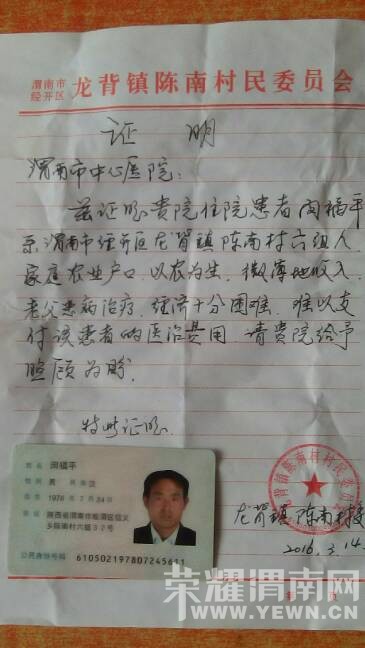 渭南市
经开区 龙背镇陈南村民委员会
证 明
渭南市中心医院:
兹证明贵院住院患者 福平
系渭南市经开区龙背镇陈南村六组人
家庭农业户口.以农为生.微薄地收入.
老父患病治疗.经济十分困难.难以支
付该患者的医治费用.请贵院给予
照顾为盼.
特此证明.
姓名 福平
性别 男 民族 汉
出生 1978 年 7 月 24 日
住址 陕西省渭南市临渭区信义
乡陈南村六组37号
公民身份号码 610502197807245611
龙背镇陈南村民委员会
龙背镇陈南村
2016.3.14
荣耀渭南网
WWW.YEWN.CN